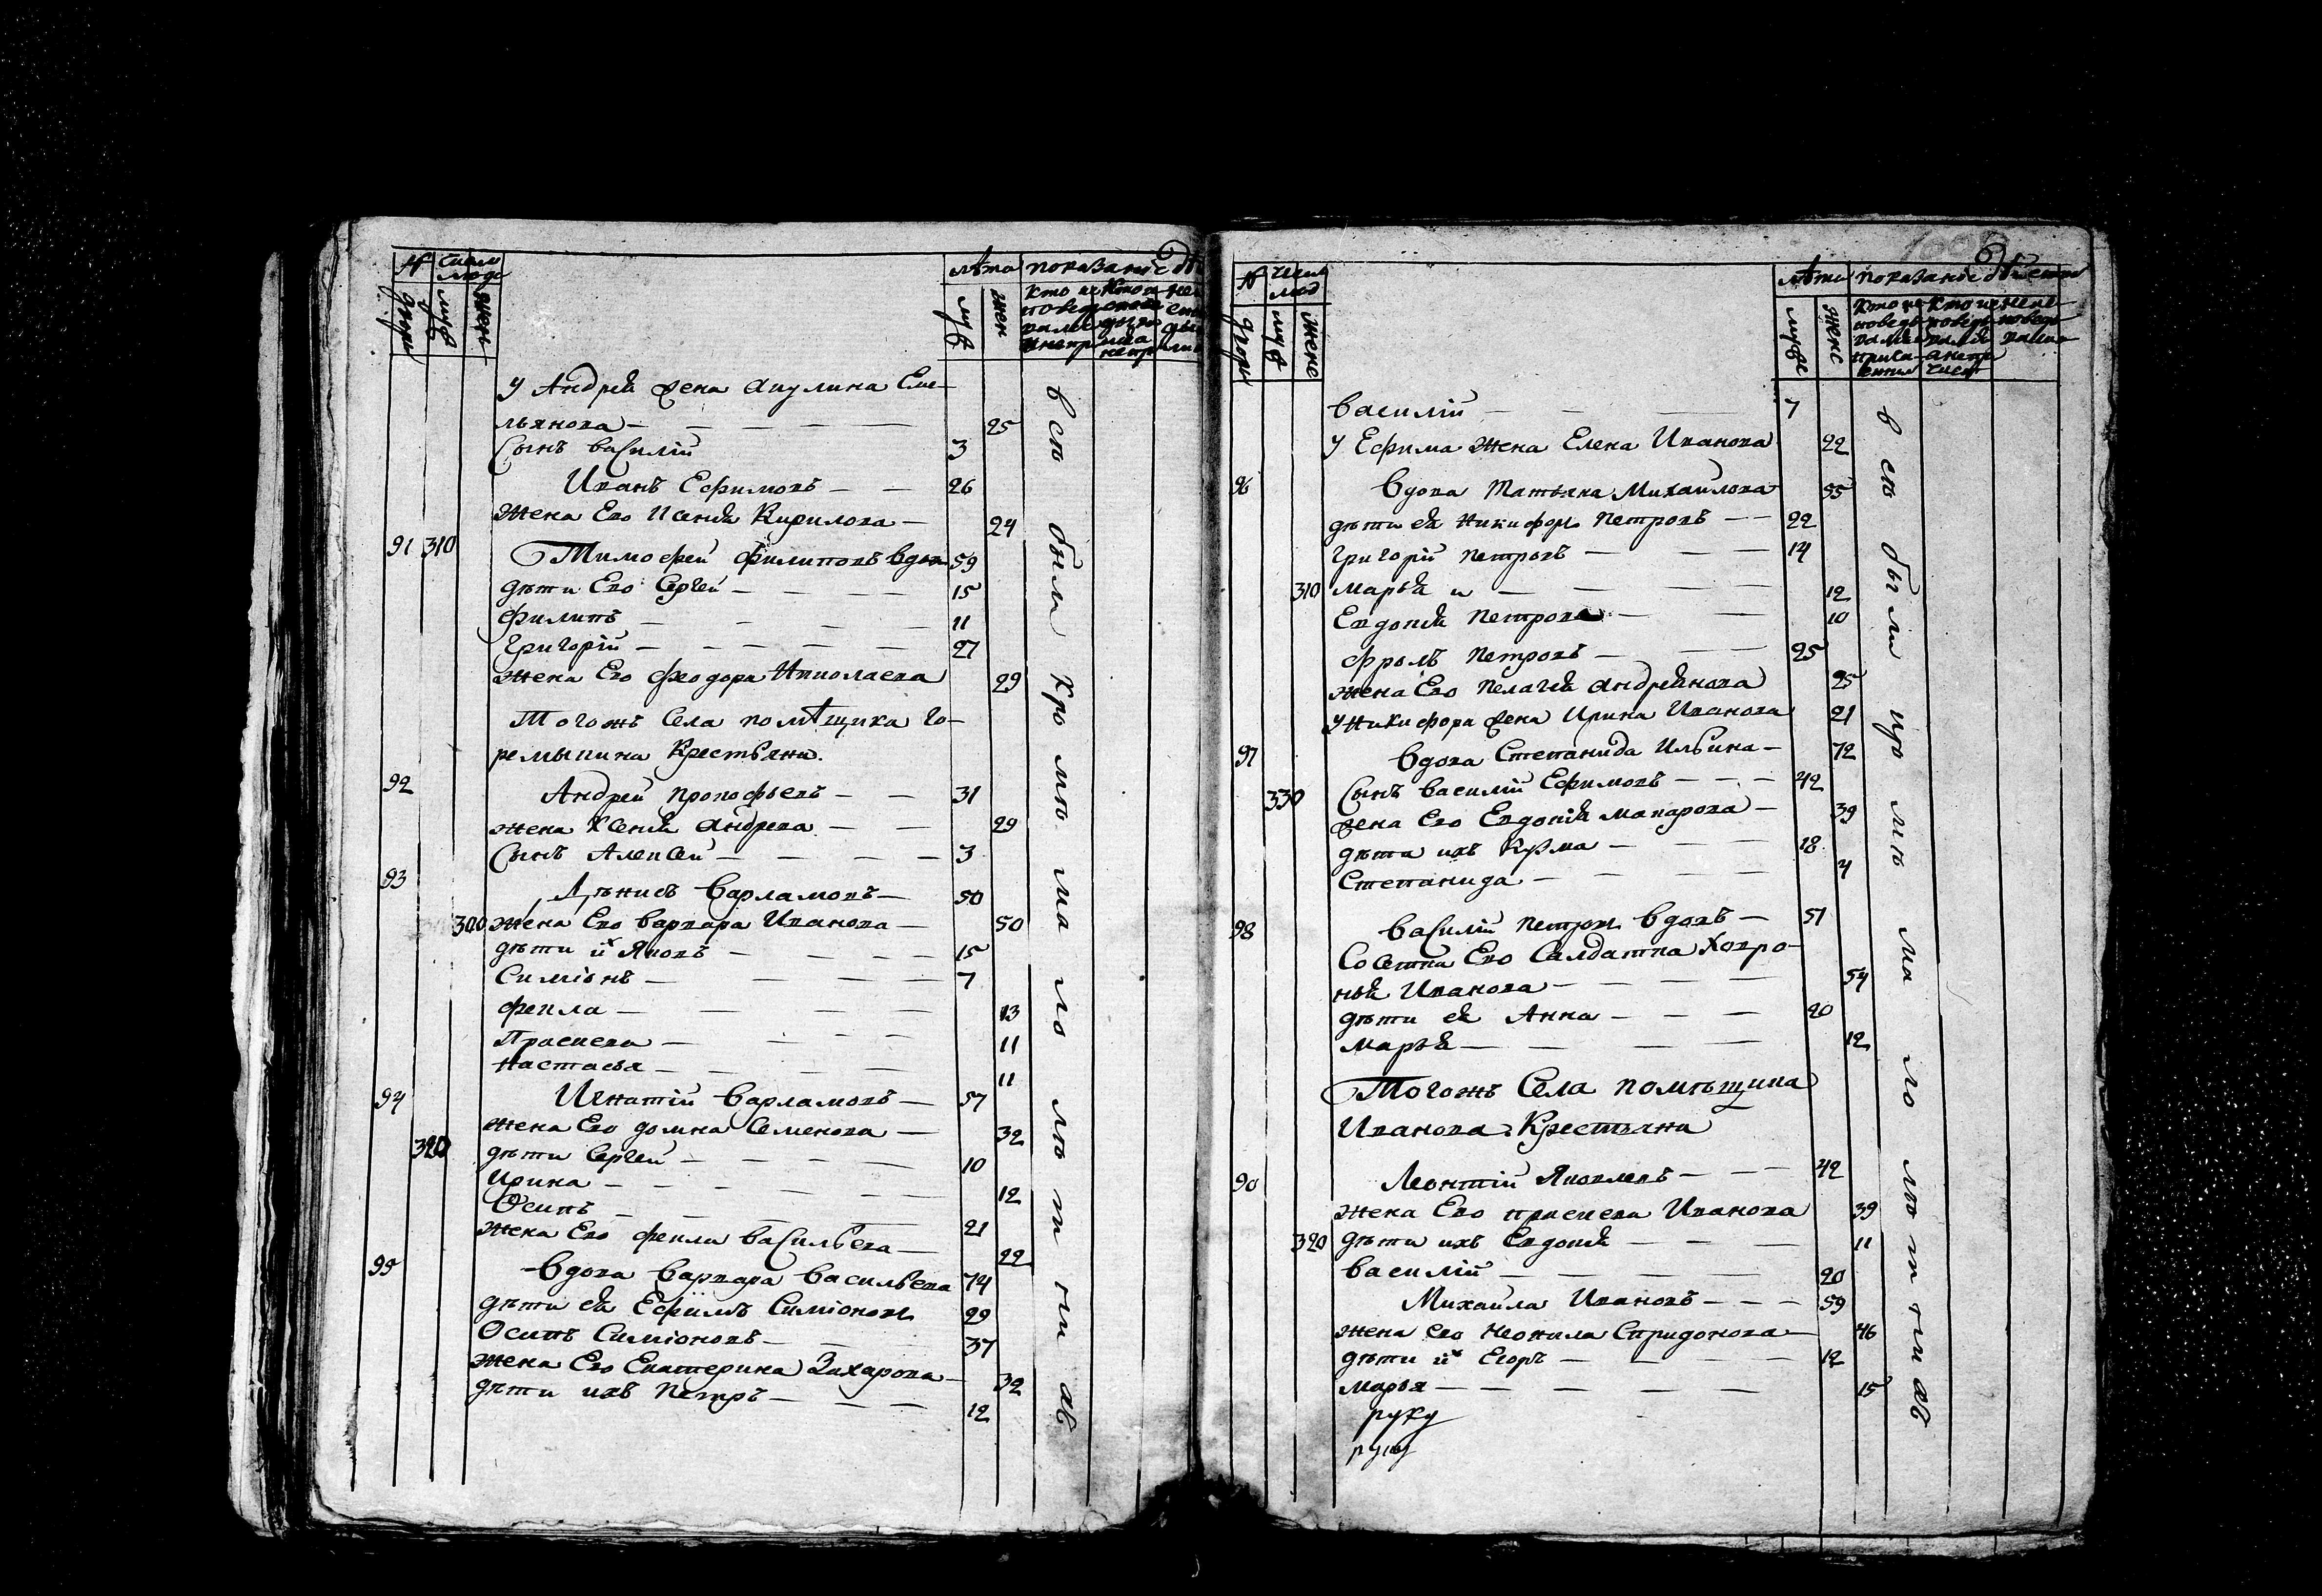 № число люде лѣта показаніе дѣ
дворъ муж жен муж жен
У Андрея жена Акулина Еме-
льянова — 25
Сынъ Василій 3
Иванъ Ефимовъ — 26
Жена Ево Ксенія Кирилова — 24
91 310 Тимофеи Филиповъ вдов 59
дѣти Ево Сергеи — 15
Филипъ — 11
Григорій — 27
Жена Ево Феодора Николаева 29
Тогожъ Села помѣщика Го-
ремыкина Крестьяни.
92 Андреи Прокофьевъ — 31
жена Ксенія Андрева — 29
Сынъ Алексеи — 3
93 Дѣнисъ Варламовъ — 50
300 Жена Ево Варвара Иванова — 50
дѣти их Яковъ — 15
Симіонъ — 7
Фекла — 13
Прасковa — 11
Настасья — 11
94 Игнатіи Варламовъ — 57
Жена Ево Домна Семенова — 32
320 дѣти Сергеи — 10
Ирина — 12
Осипъ — 21
Жена Ево Фекла Васильева — 22
95 Вдова Варвара Васильева 74
дѣти ея Ефимъ Симіоновъ 29
Осипъ Симіоновъ — 37
Жена Ево Екатерина Захарова — 32
дѣти ихъ Петръ — 12
всѣ были кромѣ малолѣтнихъ
№ число люд лѣта показаніе дѣиство
дворъ муж женс муже женс
Василій — 7
У Ефима Жена Елена Иванова 22
96 Вдова Татьяна Михаилова 55
дѣти ея Никифоръ Петровъ — 22
Григоріи Петровъ — 14
310 Марья и — 12
Евдокія Петрова — 10
Фролъ Петровъ — 25
Жена Ево Пелагея Андреянова 25
У Никифора жена Ирина Иванова 21
97 Вдова Степанида Ильина — 72
330 Сынъ Василіи Ефимовъ — 42
жена Ево Евдокія Макарова — 39
дѣти ихъ Кузма — 18
Степанида — 4
98 Василіи Петровъ вдовъ — 51
Со Сетка Ево Салдатка Хавро-
нья Иванова — 54
дѣти ея Анна — 20
Марья — 12
Тогожъ Села помѣщика
Иванова Крестьяни
90 Леонтіи Яковлевъ — 42
Жена Ево Прасковa Иванова 39
320 дѣти ихъ Евдокія — 11
Василіи — 20
Михаила Ивановъ — 59
Жена Ево Неонила Спридонова — 46
дѣти их Егоръ — 12
Марья — 15
руку
руку
всѣ были кромѣ малолѣтнихъ